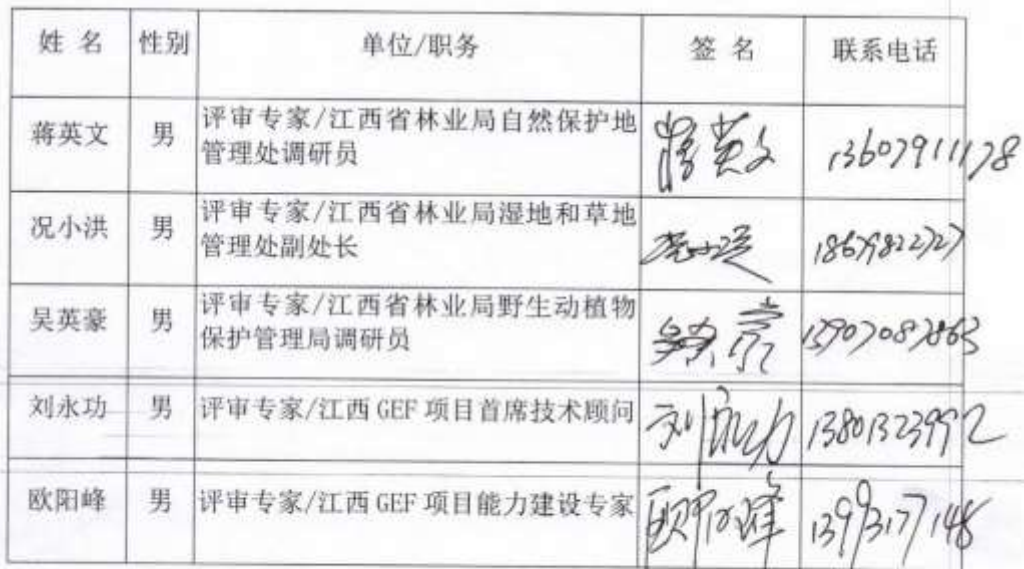 姓 名 性别 单位/职务 签 名 联系电话
蒋英文 男 评审专家/江西省林业局自然保护地
管理处调研员 蒋英文 13607911178
况小洪 男 评审专家/江西省林业局湿地和草地
管理处副处长 况小洪
吴英豪 男 评审专家/江西省林业局野生动植物
保护管理局调研员 吴英豪 13907087863
刘永功 男 评审专家/江西 GEF 项目首席技术顾问 刘永功 13801323992
欧阳峰 男 评审专家/江西 GEF 项目能力建设专家 欧阳峰